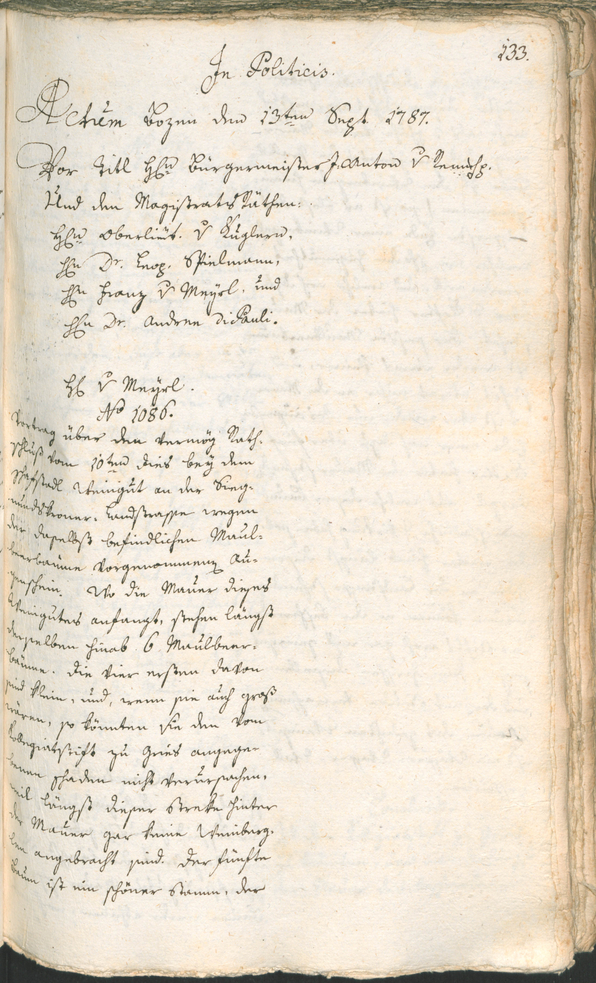 133.
In Politicis.
Actum Bozen den 13ten Sept 1787.
Vor Titl Hℋn Bürgermeister J. Anton v
Und den Magistrats Räthen:
Hhn Oberlieut. v Kuglern,
Hhn Dr. Leop. Spielmann,
Hhn Franz v Meyrl. und
Hhn Dr. Andree DiPauli.
Hh v Meyrl.
No 1086.
Vortrag über den vermög Rath-
schluß vom 10ten dies bey dem
Weingut an der Sieg-
mundskroner-Landstrasse wegen
der daselbst befindlichen Maul-
beerbäume vorgenommenen Au-
genschein. Wo die Mauer dieses
Weingutes anfangt, stehen längst
derselben hinab 6 Maulbeer-
bäume. die vier ersten davon
sind klein, und, wenn sie auch groß
wären, so könnten sie den vom
Kollegiatstift zu Gries angege-
benen schaden nicht verursachen,
weil längst dieser Streke hinter
der Mauer gar keine Weinberg-
angebracht sind. Der fünfte
Baum ist ein schöner Stamm, der